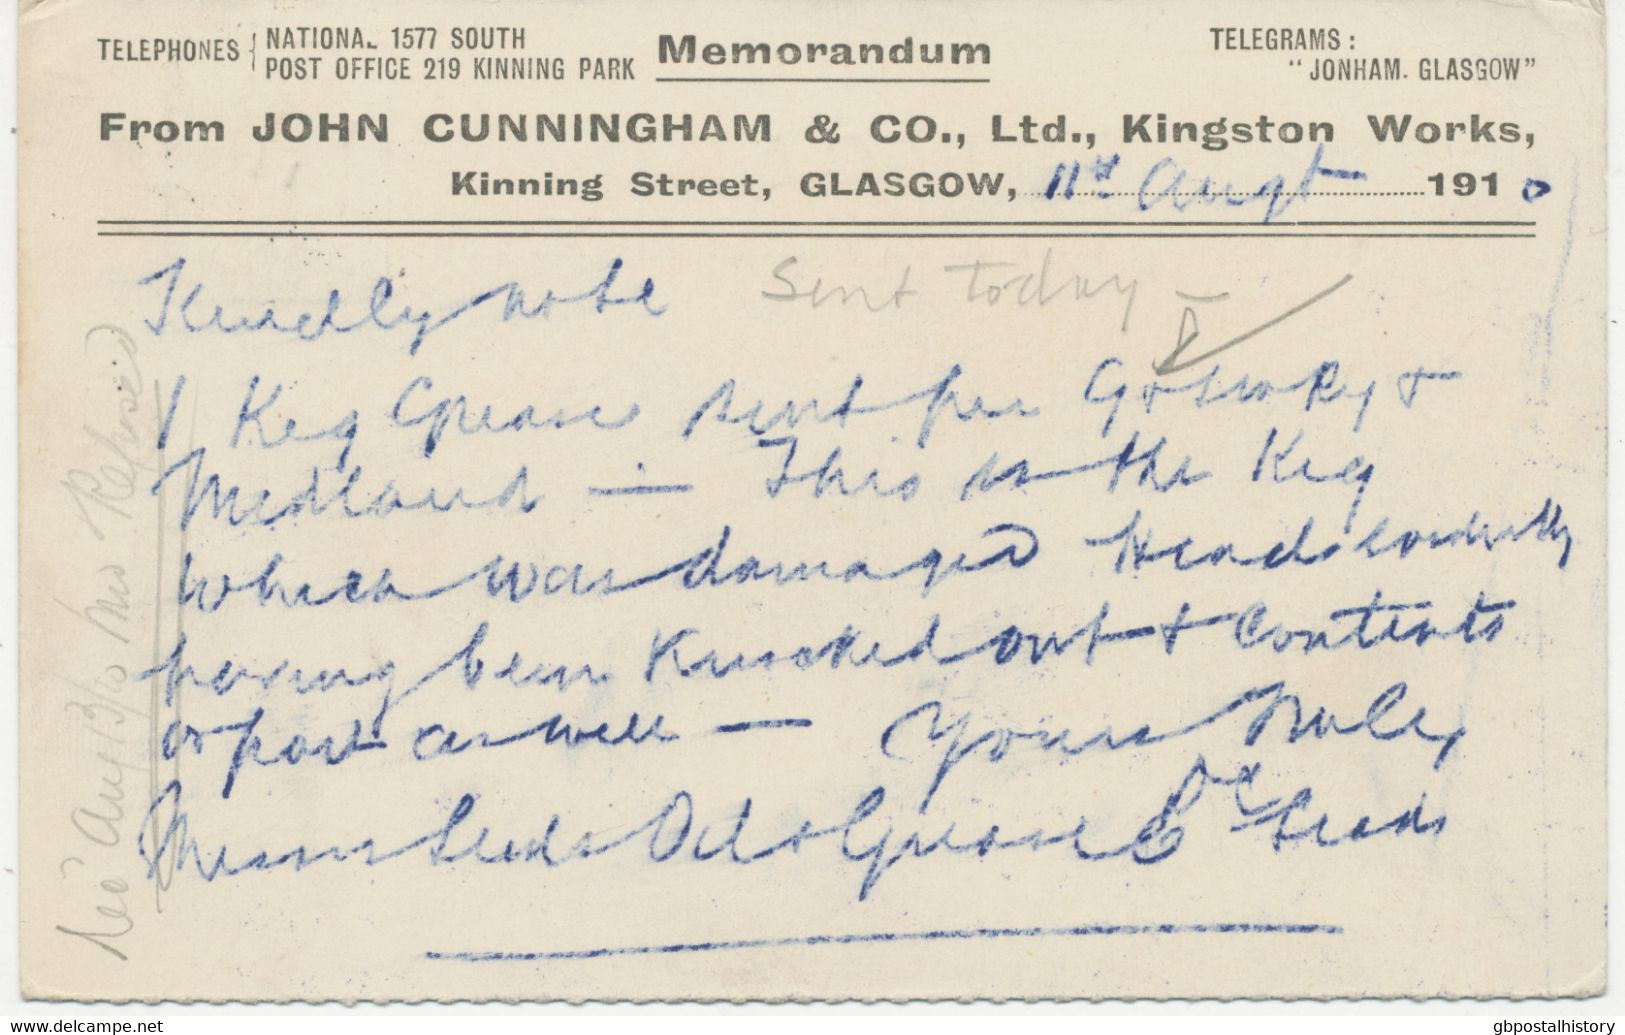 TELEPHONES { NATIONAL 1577 SOUTH
POST OFFICE 219 KINNING PARK
Memorandum
TELEGRAMS:
"JONHAM. GLASGOW"
From JOHN CUNNINGHAM & CO., Ltd., Kingston Works,
Kinning Street, GLASGOW, 11th Augt 1910
Kindly note
Sent today
1 Keg Grease sent per G & S W Ry &
Midland — This is the Keg
which was damaged Heads
having been Knocked out & Contents
or part as well — Yours
Messrs Leeds Oil & Grease Co Leeds
Aug 13/10 Repared
www.delcampe.net
gbpostalhistory